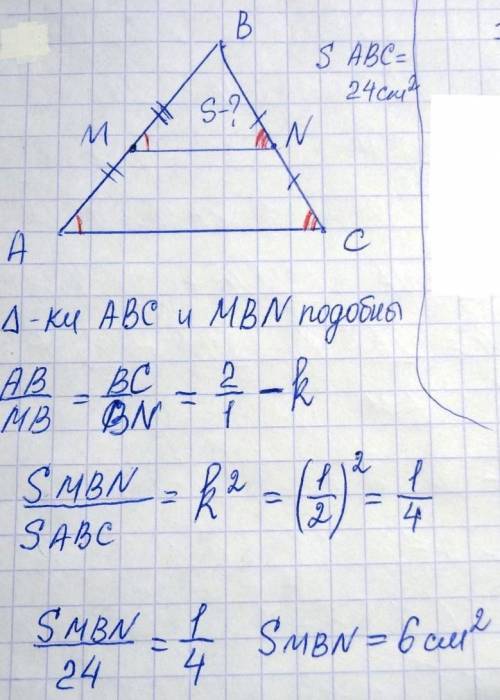 B
S ABC=
24см²
S-?
M
N
A
C
Δ-ки ABC и MBN подобны
AB/MB = BC/BN = 2/1 - k
SMBN/SABC = k² = (1/2)² = 1/4
SMBN/24 = 1/4 SMBN = 6 см²